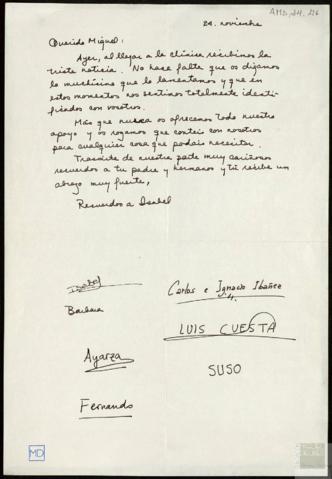 AMD, 24, 226
24. noviembre
Querido Miguel:
Ayer, al llegar a la clínica recibimos la
triste noticia. No hace falta que os digamos
lo muchísimo que lo lamentamos y que en
estos momentos nos sentimos totalmente identi-
ficados con vosotros.
Más que nunca os ofrecemos todo nuestro
apoyo y os rogamos que conteis con nosotros
para cualquier cosa que podais necesitar.
Trasmite de nuestra parte muy cariñosos
recuerdos a tu padre y hermanos y tú recibe un
abrazo muy fuerte,
Recuerdos a Isabel
Isabel
Barbara
Carlos e Ignacio Ibáñez
LUIS CUESTA
Ayarza
SUSO
Fernando
MD